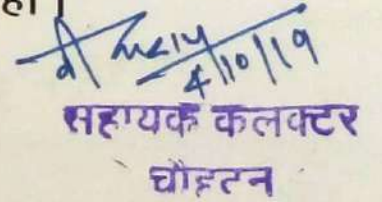 हो।
4/10/19
सहायक कलक्टर
चौहटन